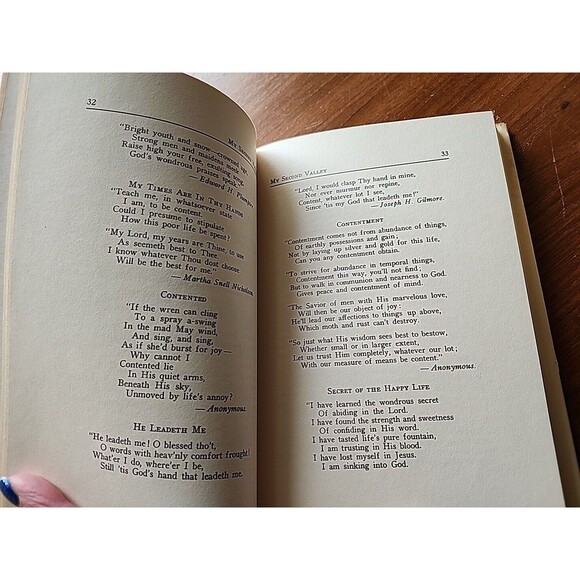 32
My Second
"Bright youth and snow-crowned age,
Strong men and maidens meek,
Raise high your free, exulting song,
God's wondrous praises speak."
— Edward H. Plumptre.
My Times Are In Thy Hands
"Teach me, in whatsoever state
I am, to be content.
Could I presume to stipulate
How this poor life be spent?
"My Lord, my years are Thine, to use
As seemeth best to Thee.
I know whatever Thou dost choose
Will be the best for me."
— Martha Snell Nicholson.
Contented
"If the wren can cling
To a spray a-swing
In the mad May wind,
And sing, and sing,
As if she'd burst for joy—
Why cannot I
Contented lie
In His quiet arms,
Beneath His sky,
Unmoved by life's annoy?
— Anonymous.
He Leadeth Me
"He leadeth me! O blessed tho't,
O words with heav'nly comfort frought!
What'er I do, where'er I be,
Still 'tis God's hand that leadeth me.
My Second Valley
33
"Lord, I would clasp Thy hand in mine,
Nor ever murmur nor repine,
Content, whatever lot I see,
Since 'tis my God that leadeth me!"
— Joseph H. Gilmore.
Contentment
"Contentment comes not from abundance of things,
Of earthly possessions and gain;
Not by laying up silver and gold for this life,
Can you any contentment obtain.
"To strive for abundance in temporal things,
Contentment this way, you'll not find;
But to walk in communion and nearness to God.
Gives peace and contentment of mind.
"The Savior of men with His marvelous love,
Will then be our object of joy:
He'll lead our affections to things up above,
Which moth and rust can't destroy.
"So just what His wisdom sees best to bestow,
Whether small or in larger extent,
Let us trust Him completely, whatever our lot;
With our measure of means be content."
— Anonymous.
Secret of the Happy Life
"I have learned the wondrous secret
Of abiding in the Lord.
I have found the strength and sweetness
Of confiding in His word.
I have tasted life's pure fountain,
I am trusting in His blood.
I have lost myself in Jesus.
I am sinking into God.